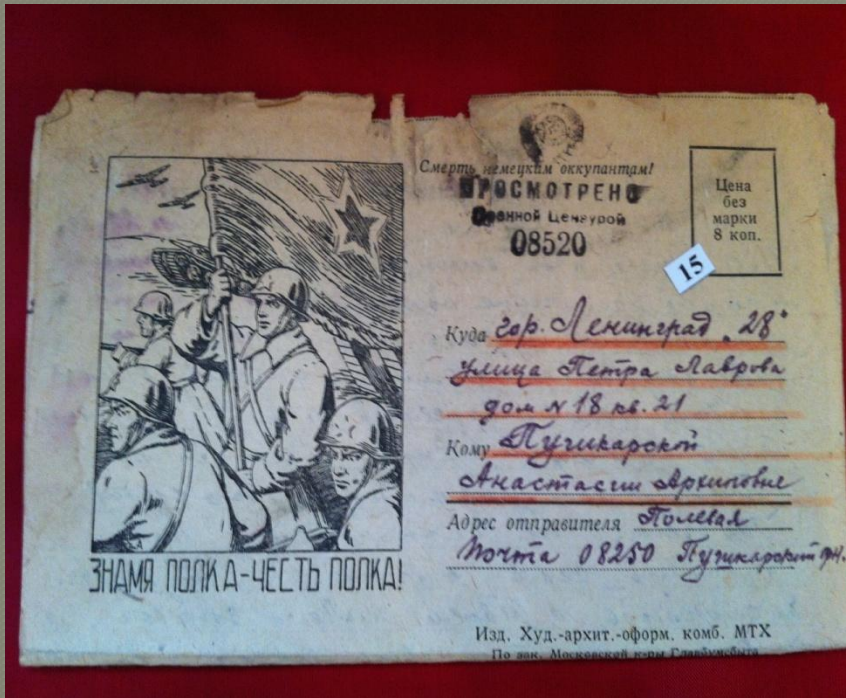 Смерть немецким оккупантам!
ПРОСМОТРЕНО
Военной Цензурой
08520
Цена
без
марки
8 коп.
15
Куда гор. Ленинград „28"
улица Петра Лаврова
дом № 18 кв. 21
Кому Пушкарской
Анастасии Архиповне
Адрес отправителя Полевая
почта 08250 Пушкарский
ЗНАМЯ ПОЛКА-ЧЕСТЬ ПОЛКА!
Изд. Худ.-архит.-оформ. комб. МТХ
По зак. Московской к-ры Главбумсбыта